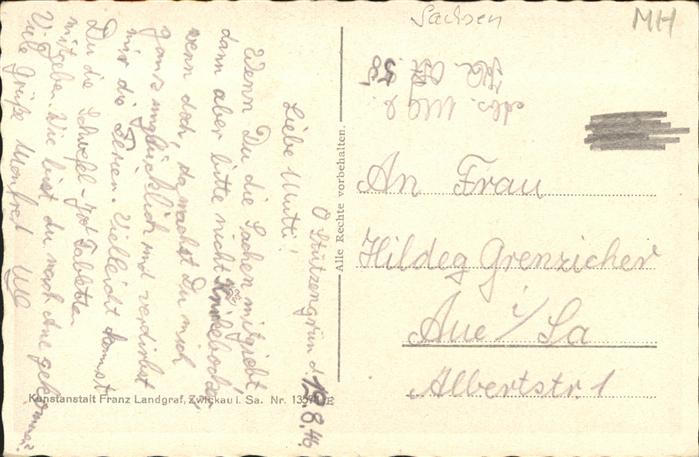 Sachsen
MH
O Stützengrün d. 12.8.46
Liebe Mutti!
Wenn Du die Sachen mitgiebst
dann aber bitte nicht
wenn doch, so machst Du mich
ganz unglücklich und verdirbst
mir die Ferien. Vielleicht kannst
Du die Schwefel-Jod Tabletten
mitgeben. Wie bist du nach Aue gekommen.
Viele Grüße Manfred
Alle Rechte vorbehalten.
An Frau
Hildeg Grenzicher
Aue i/Sa
Albertstr. 1
Kunstanstalt Franz Landgraf, Zwickau i. Sa. Nr.